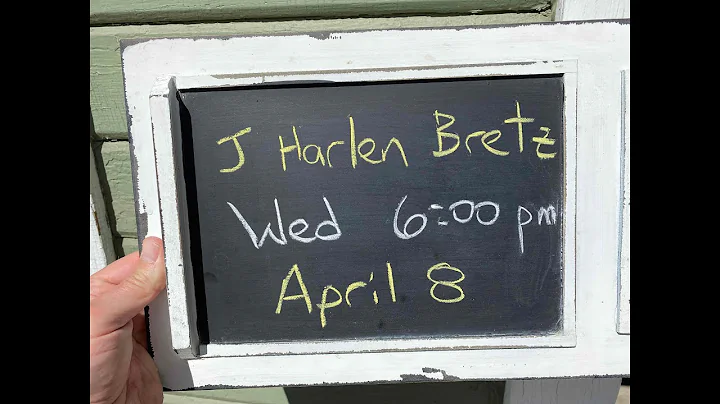 J Harlen Bretz
Wed 6:00 pm
April 8